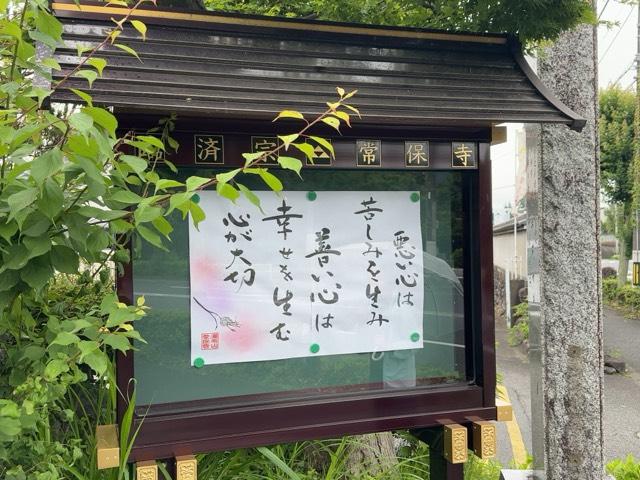 臨済宗 常保寺
悪い心は
苦しみを生み
善い心は
幸せを生む
心が大切